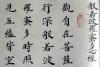 般若波羅蜜多心經
觀自在菩薩
行深般若波
羅蜜多時照
見五蘊皆空